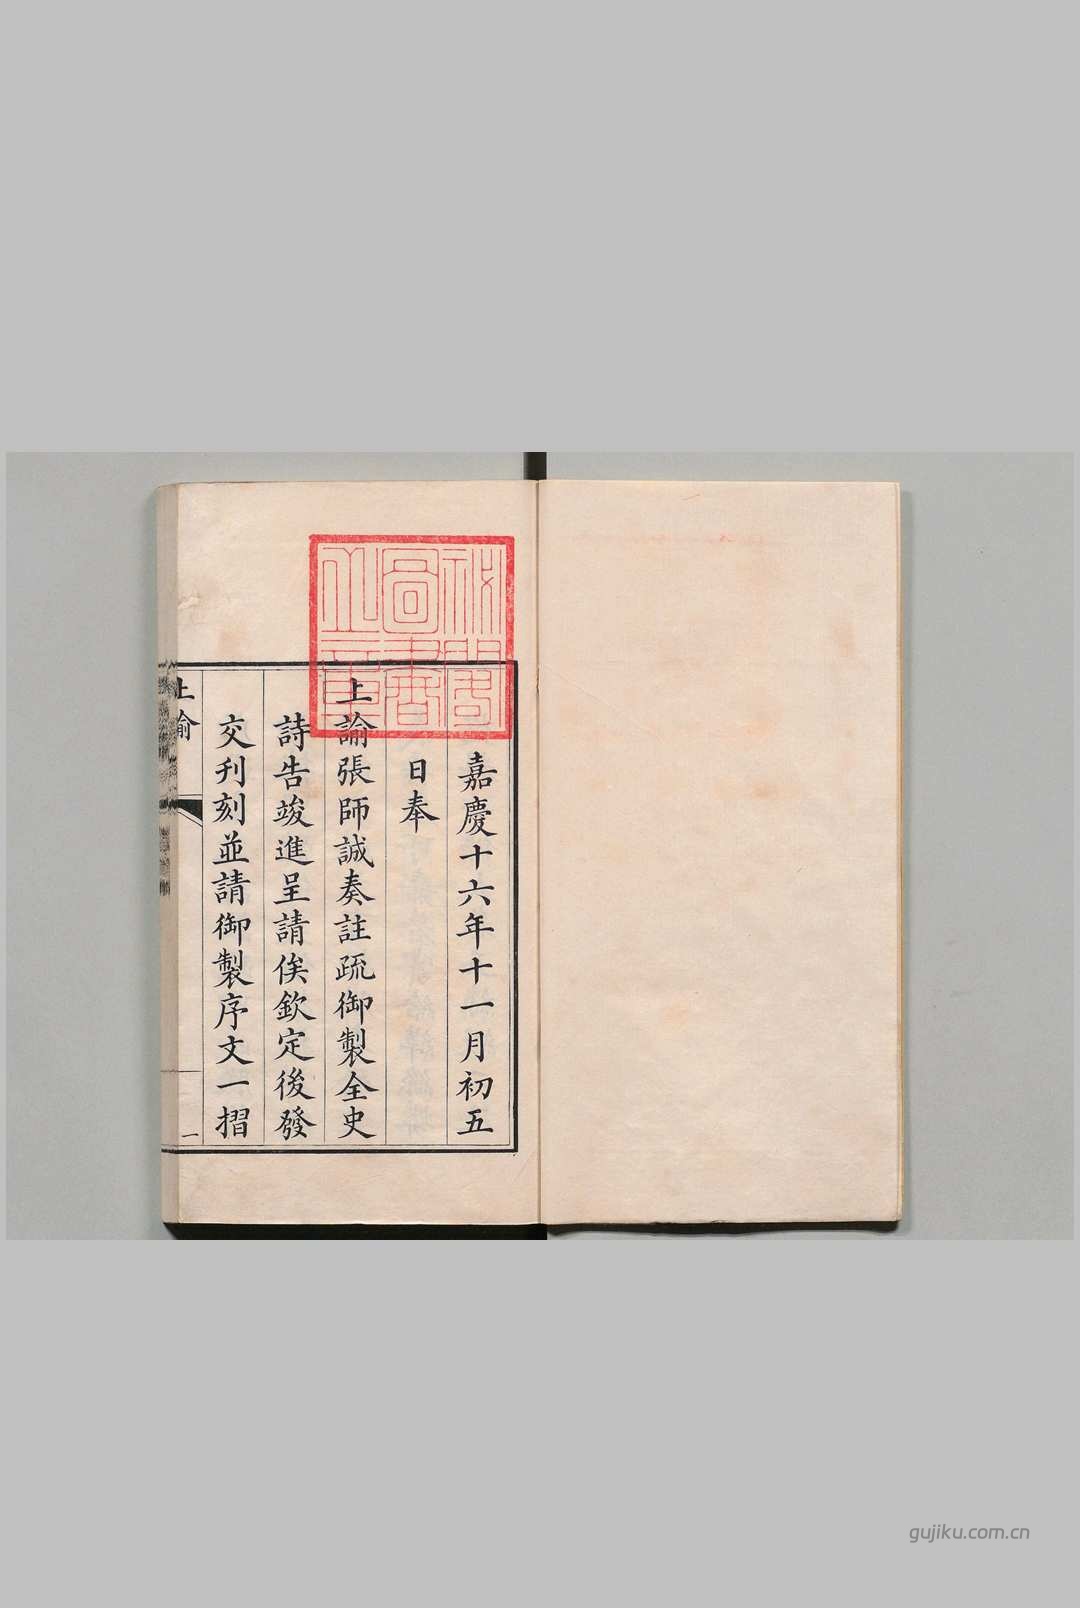 嘉慶十六年十一月初五
日奉
上諭張師誠奏註疏御製全史
詩告竣進呈請俟欽定後發
交刊刻並請御製序文一摺
上諭
一
秘閣圖書之章
gujiku.com.cn